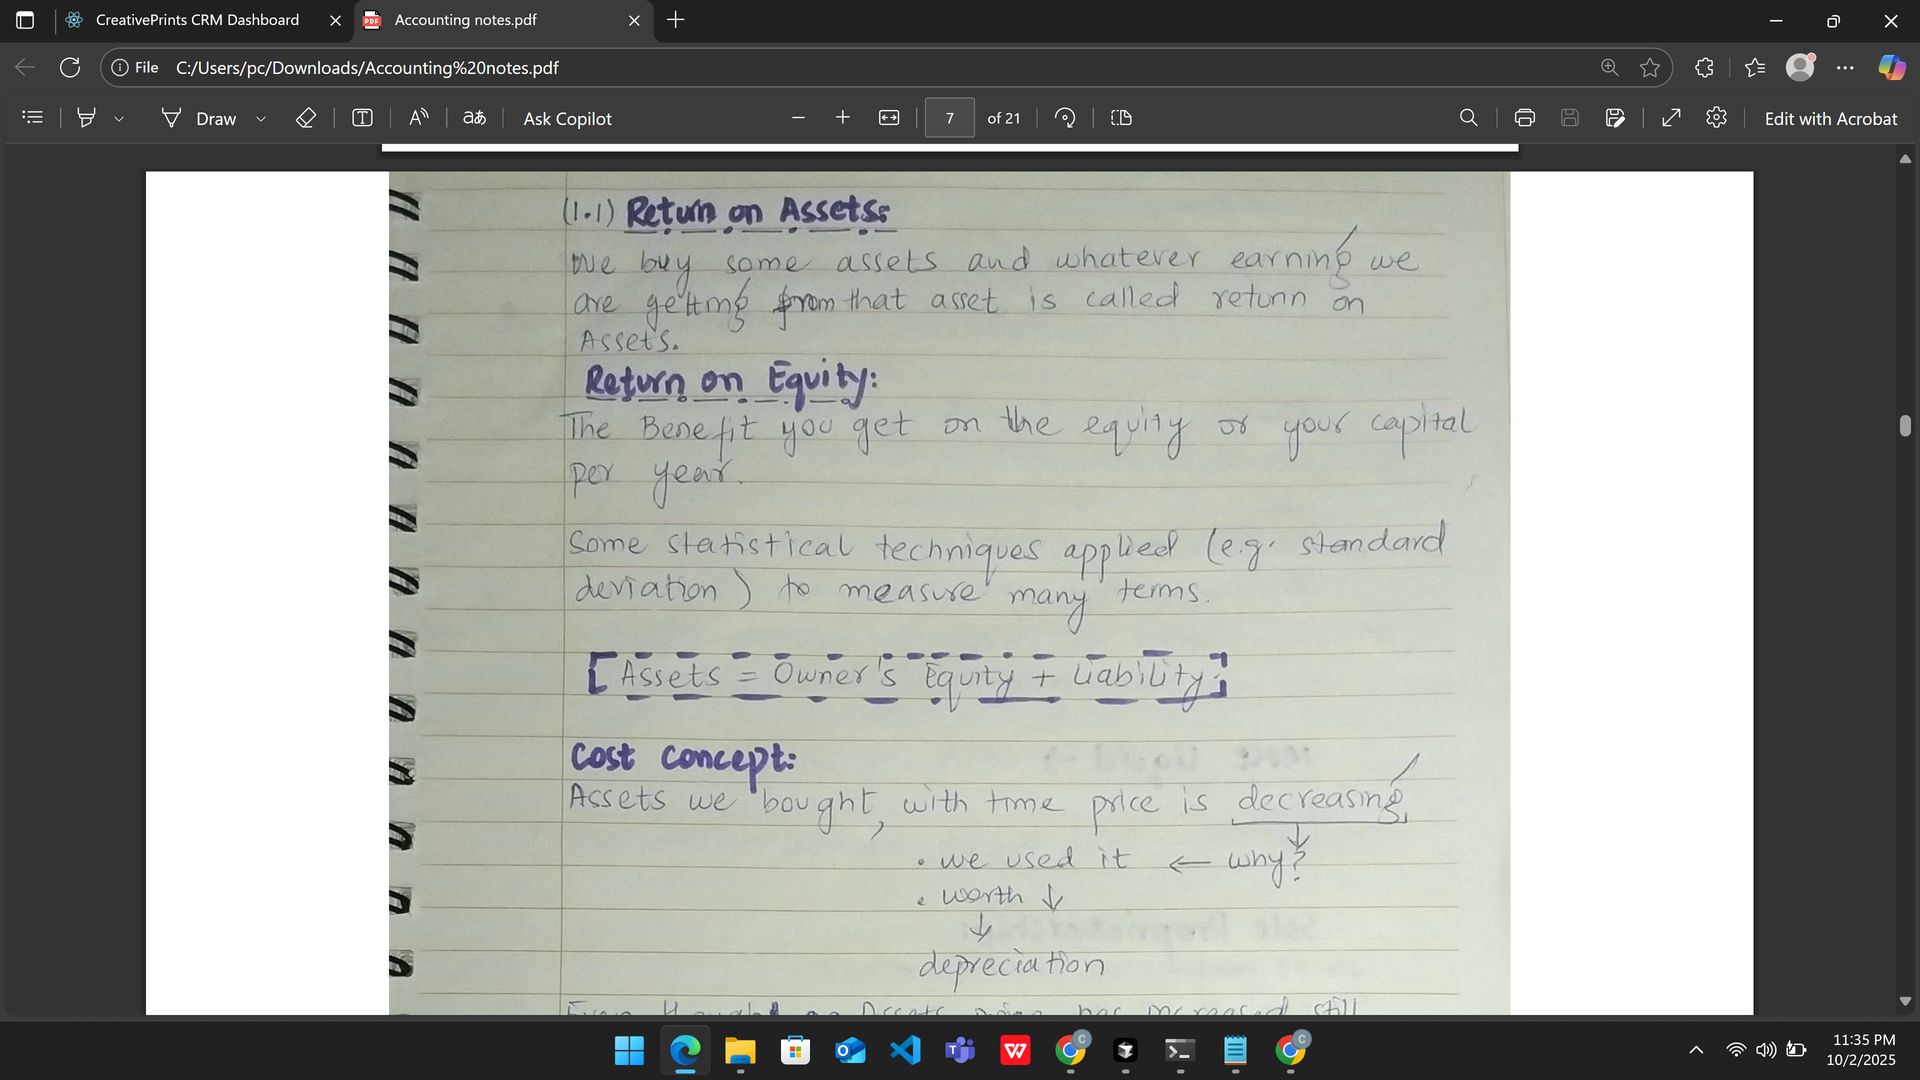 CreativePrints CRM Dashboard
Accounting notes.pdf
File
C:/Users/pc/Downloads/Accounting%20notes.pdf
Draw
Ask Copilot
7 of 21
Edit with Acrobat
(1.1) Return on Assets:
We buy some assets and whatever earning we
are getting from that asset is called return on
Assets.
Return on Equity:
The Benefit you get on the equity or your capital
per year.
Some statistical techniques applied (e.g. standard
deviation) to measure many terms.
[Assets = Owner's Equity + Liability]
Cost Concept:
Assets we bought, with time price is decreasing
• we used it ← why?
• worth ↓
↓
depreciation
Assets has increased still
11:35 PM
10/2/2025